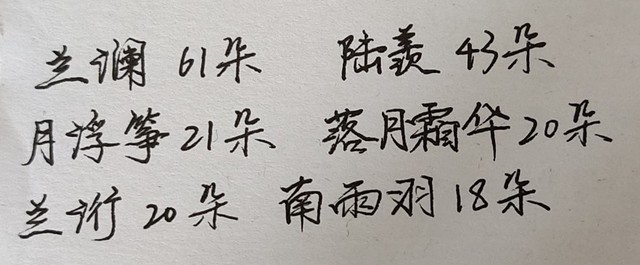 兰澜 61朵 陆羡 43朵
月浮筝 21朵 落月霜华 20朵
兰诩 20朵 南雨羽 18朵